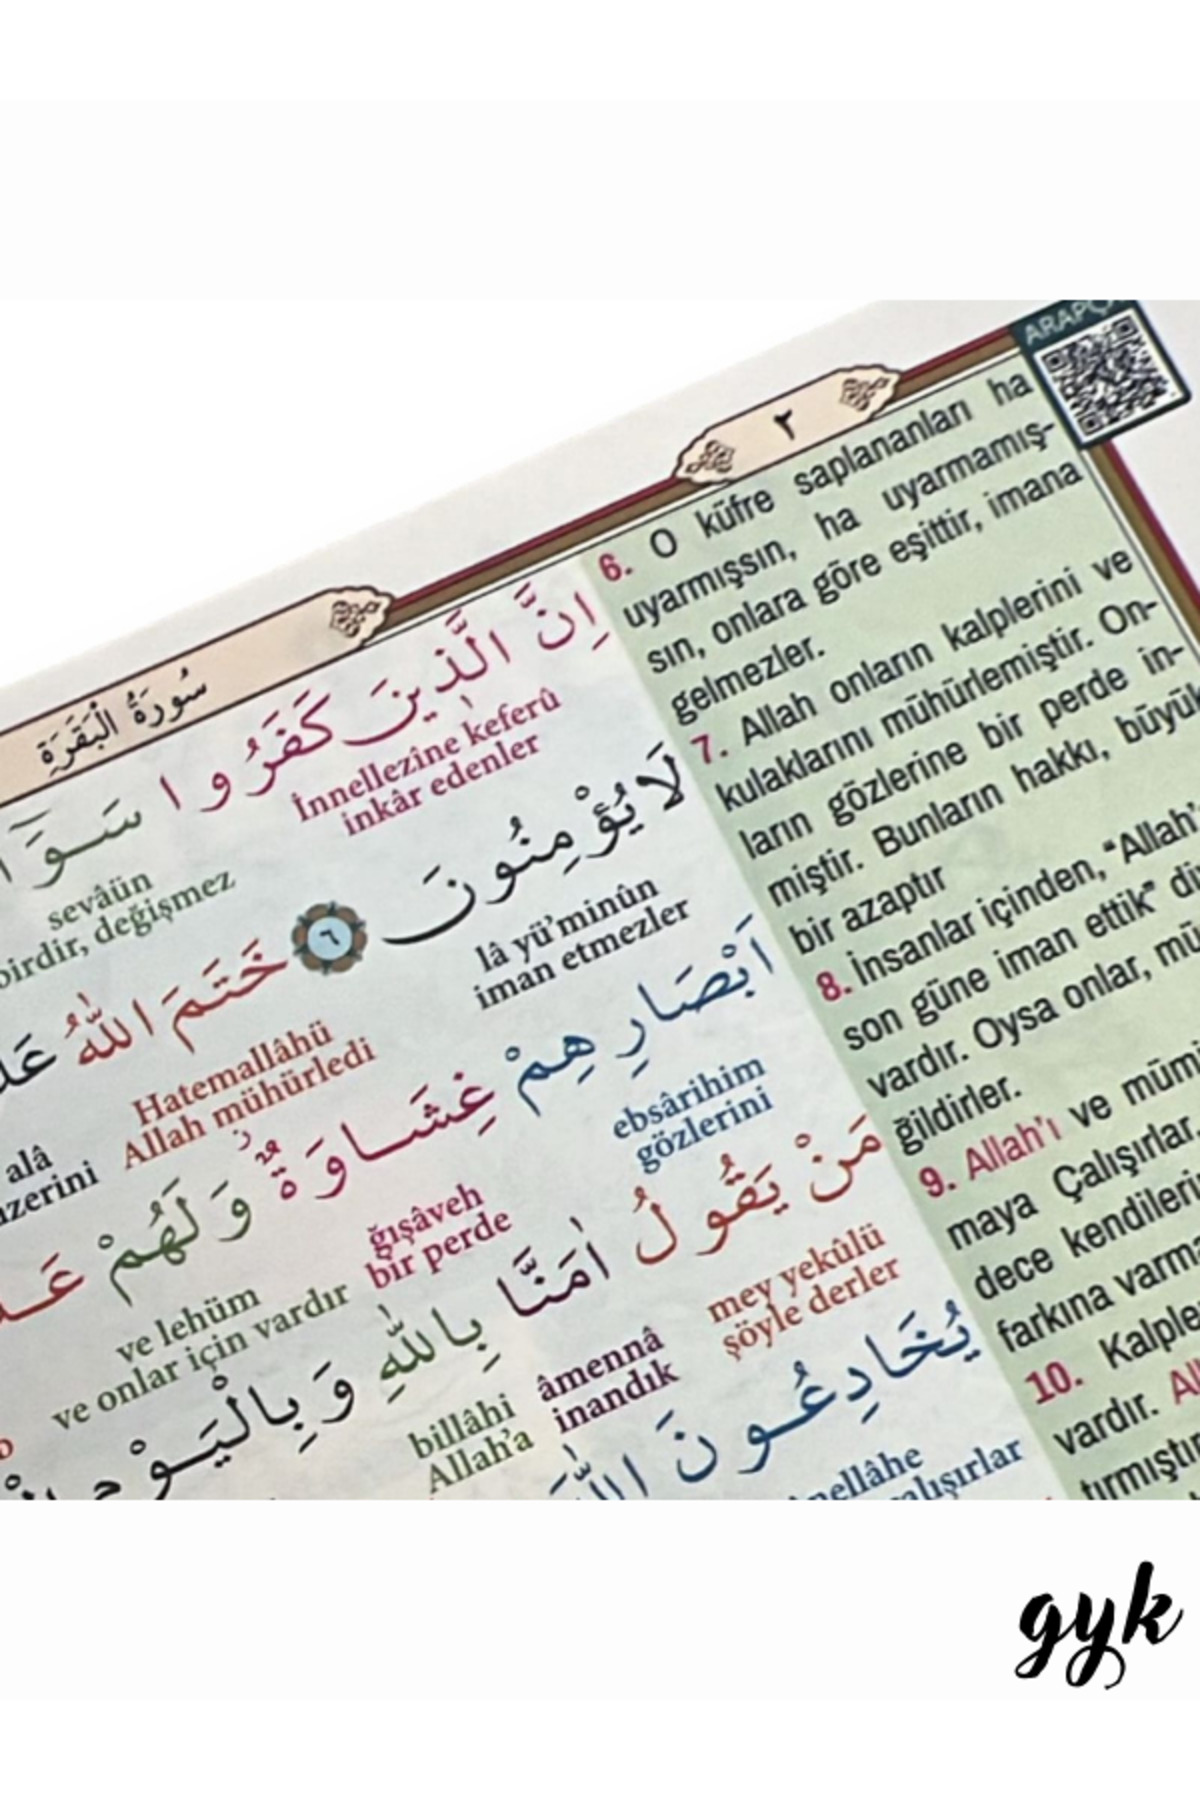 ARAPÇA
٢
سُورَةُ الْبَقَرَةِ
6. O küfre saplananları ha
uyarmışsın, ha uyarmamış-
sın, onlara göre eşittir, imana
gelmezler.
7. Allah onların kalplerini ve
kulaklarını mühürlemiştir. On-
ların gözlerine bir perde in-
miştir. Bunların hakkı, büyük
bir azaptır
8. İnsanlar içinden, “Allah'
son güne iman ettik”
vardır. Oysa onlar,
ğildirler.
9. Allah'ı ve
maya Çalışırlar.
dece
farkına
10.
vardır.
اِنَّ الَّذٖينَ كَفَرُوا
İnnellezîne keferû
inkâr edenler
sevâün
birdir, değişmez
لَا يُؤْمِنُونَ ٦ خَتَمَ اللّٰهُ
lâ yü'minûn
iman etmezler
Hatemallâhü
Allah mühürledi
alâ
üzerini
اَبْصَارِهِمْ غِشَاوَةٌ وَلَهُمْ
ebsârihim
gözlerini
ğışâveh
bir perde
ve lehüm
ve onlar için vardır
مَنْ يَقُولُ اٰمَنَّا بِاللّٰهِ وَبِالْيَوْمِ
mey yekûlü
şöyle derler
âmennâ
inandık
billâhi
Allah'a
يُخَادِعُونَ اللّٰهَ
gyk